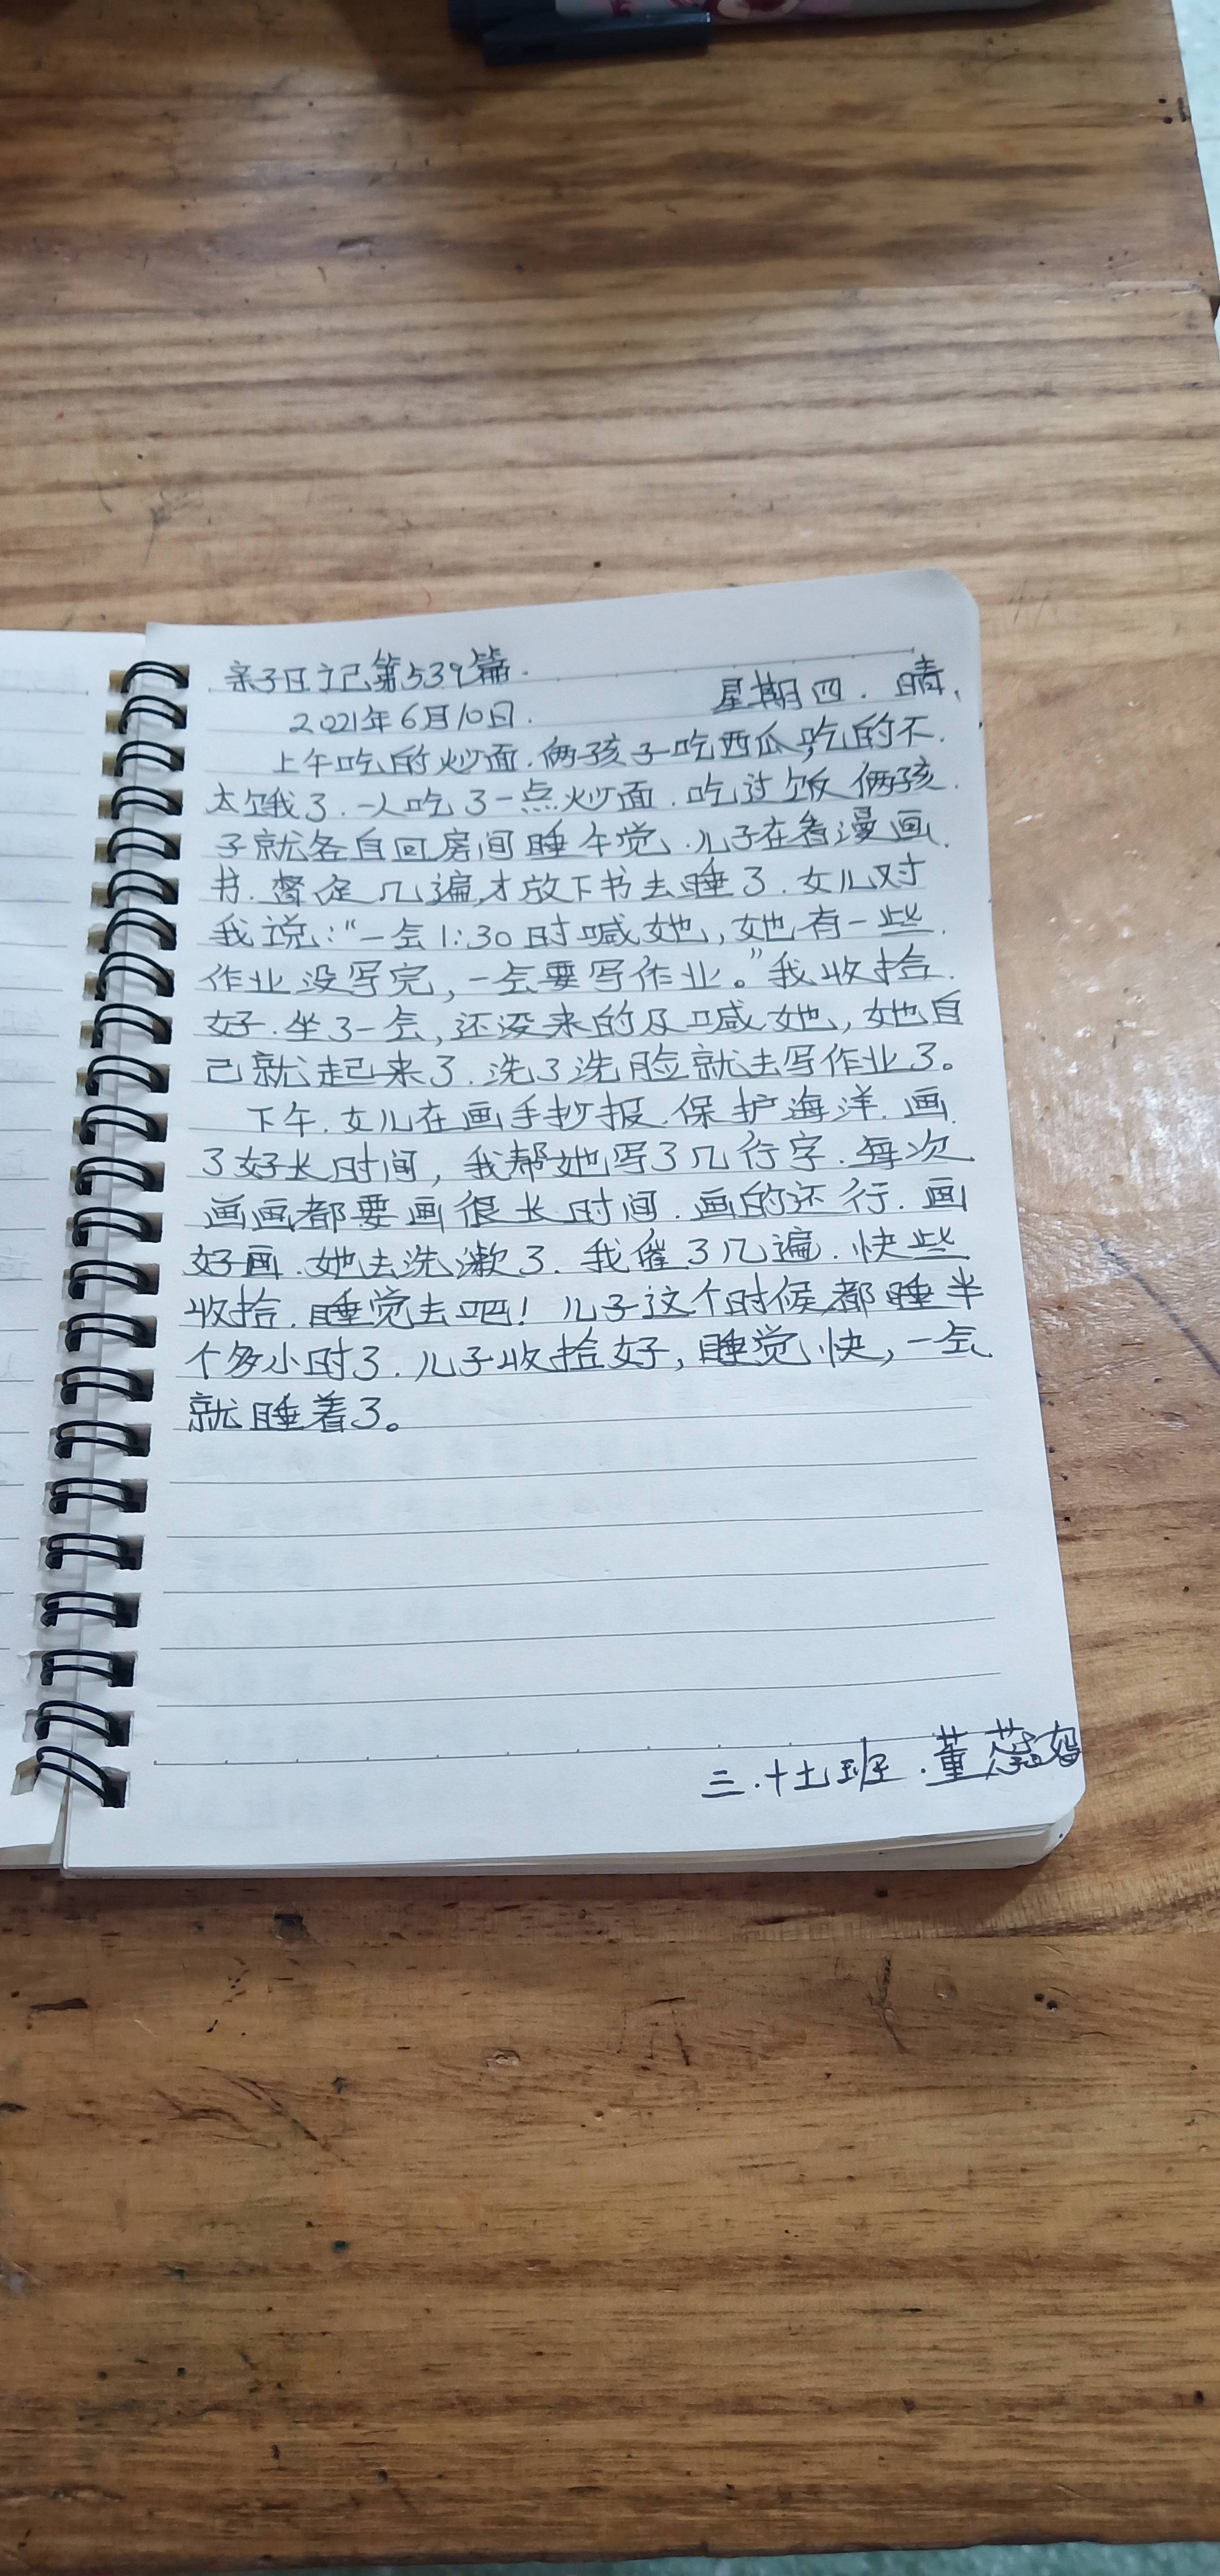 亲子日记第539篇.
2021年6月10日. 星期四. 晴.
上午吃的炒面.俩孩子吃西瓜,吃的不.
太饿了.一人吃了一点炒面.吃过饭俩孩.
子就各自回房间睡午觉.儿子在看漫画.
书.督促几遍,才放下书去睡了.女儿对
我说:“一会1:30时喊她,她有一些.
作业没写完,一会要写作业。”我收拾.
好.坐了一会,还没来的及喊她,她自
己就起来了.洗了洗脸就去写作业了。
下午.女儿在画手抄报.保护海洋.画.
了好长时间,我帮她写了几行字.每次
画画都要画很长时间.画的还行.画
好画.她去洗漱了.我催了几遍.快些
收拾.睡觉去吧!儿子这个时候都睡半
个多小时了.儿子收拾好,睡觉快,一会
就睡着了。
三.十七班.董蕊妈